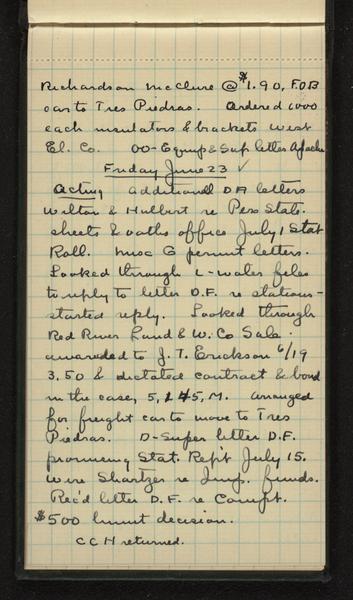 Richardson McClure @ $1.90, F.O.B
cars Tres Piedras. Ordered 1000
each insulators & brackets West
El. Co. OO-Equip & Sup letter Apache
Friday June 23 ✓
Acting additional DA letters
Wilton & Hulbert re Pers Stat.
sheets & oaths office July 1 Stat
Roll. misc G permit letters.
Looked through L-water files
to reply to letter D.F. re stations-
started reply. Looked through
Red River Land & W. Co Sale.
awarded to J. T. Erickson 6/19
3.50 & dictated contract & bond
in the case, 5, M. arranged
for freight cars to move to Tres
Piedras. D-Super letter D.F.
promising Stat. Rept July 15.
Wire Shartzer re Imp. funds.
Rec'd letter D.F. re Compt.
$500 limit decision.
CCH returned.